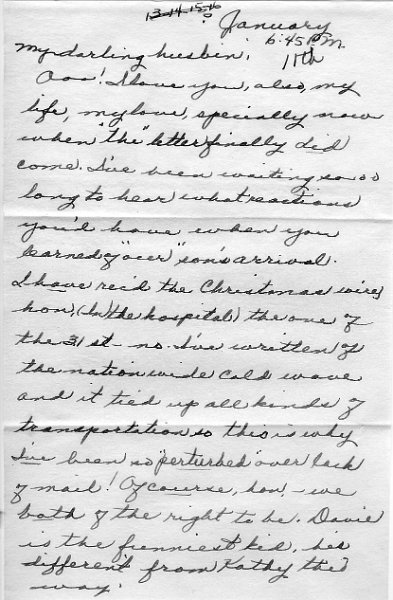 13-14-15-16
January
6:45 P.M.
11th
My darling husbin,
Ooo! I love you, also, my
life, my love, specially now
when "the" letter finally did
come. I've been waiting so oo
long to hear what reactions
you'd have when you
learned of "our" son's arrival.
I have rec'd the Christmas wire,
hon, (In the hospital) the one of
the 31st - no. I've written of
the nation wide cold wave
and it tied up all kinds of
transportation so this is why
I've been so "perturbed" over lack
of mail! Of course, hon, - we
both of the right to be. Davie
is the funniest kid, he's
different from Kathy the
way.